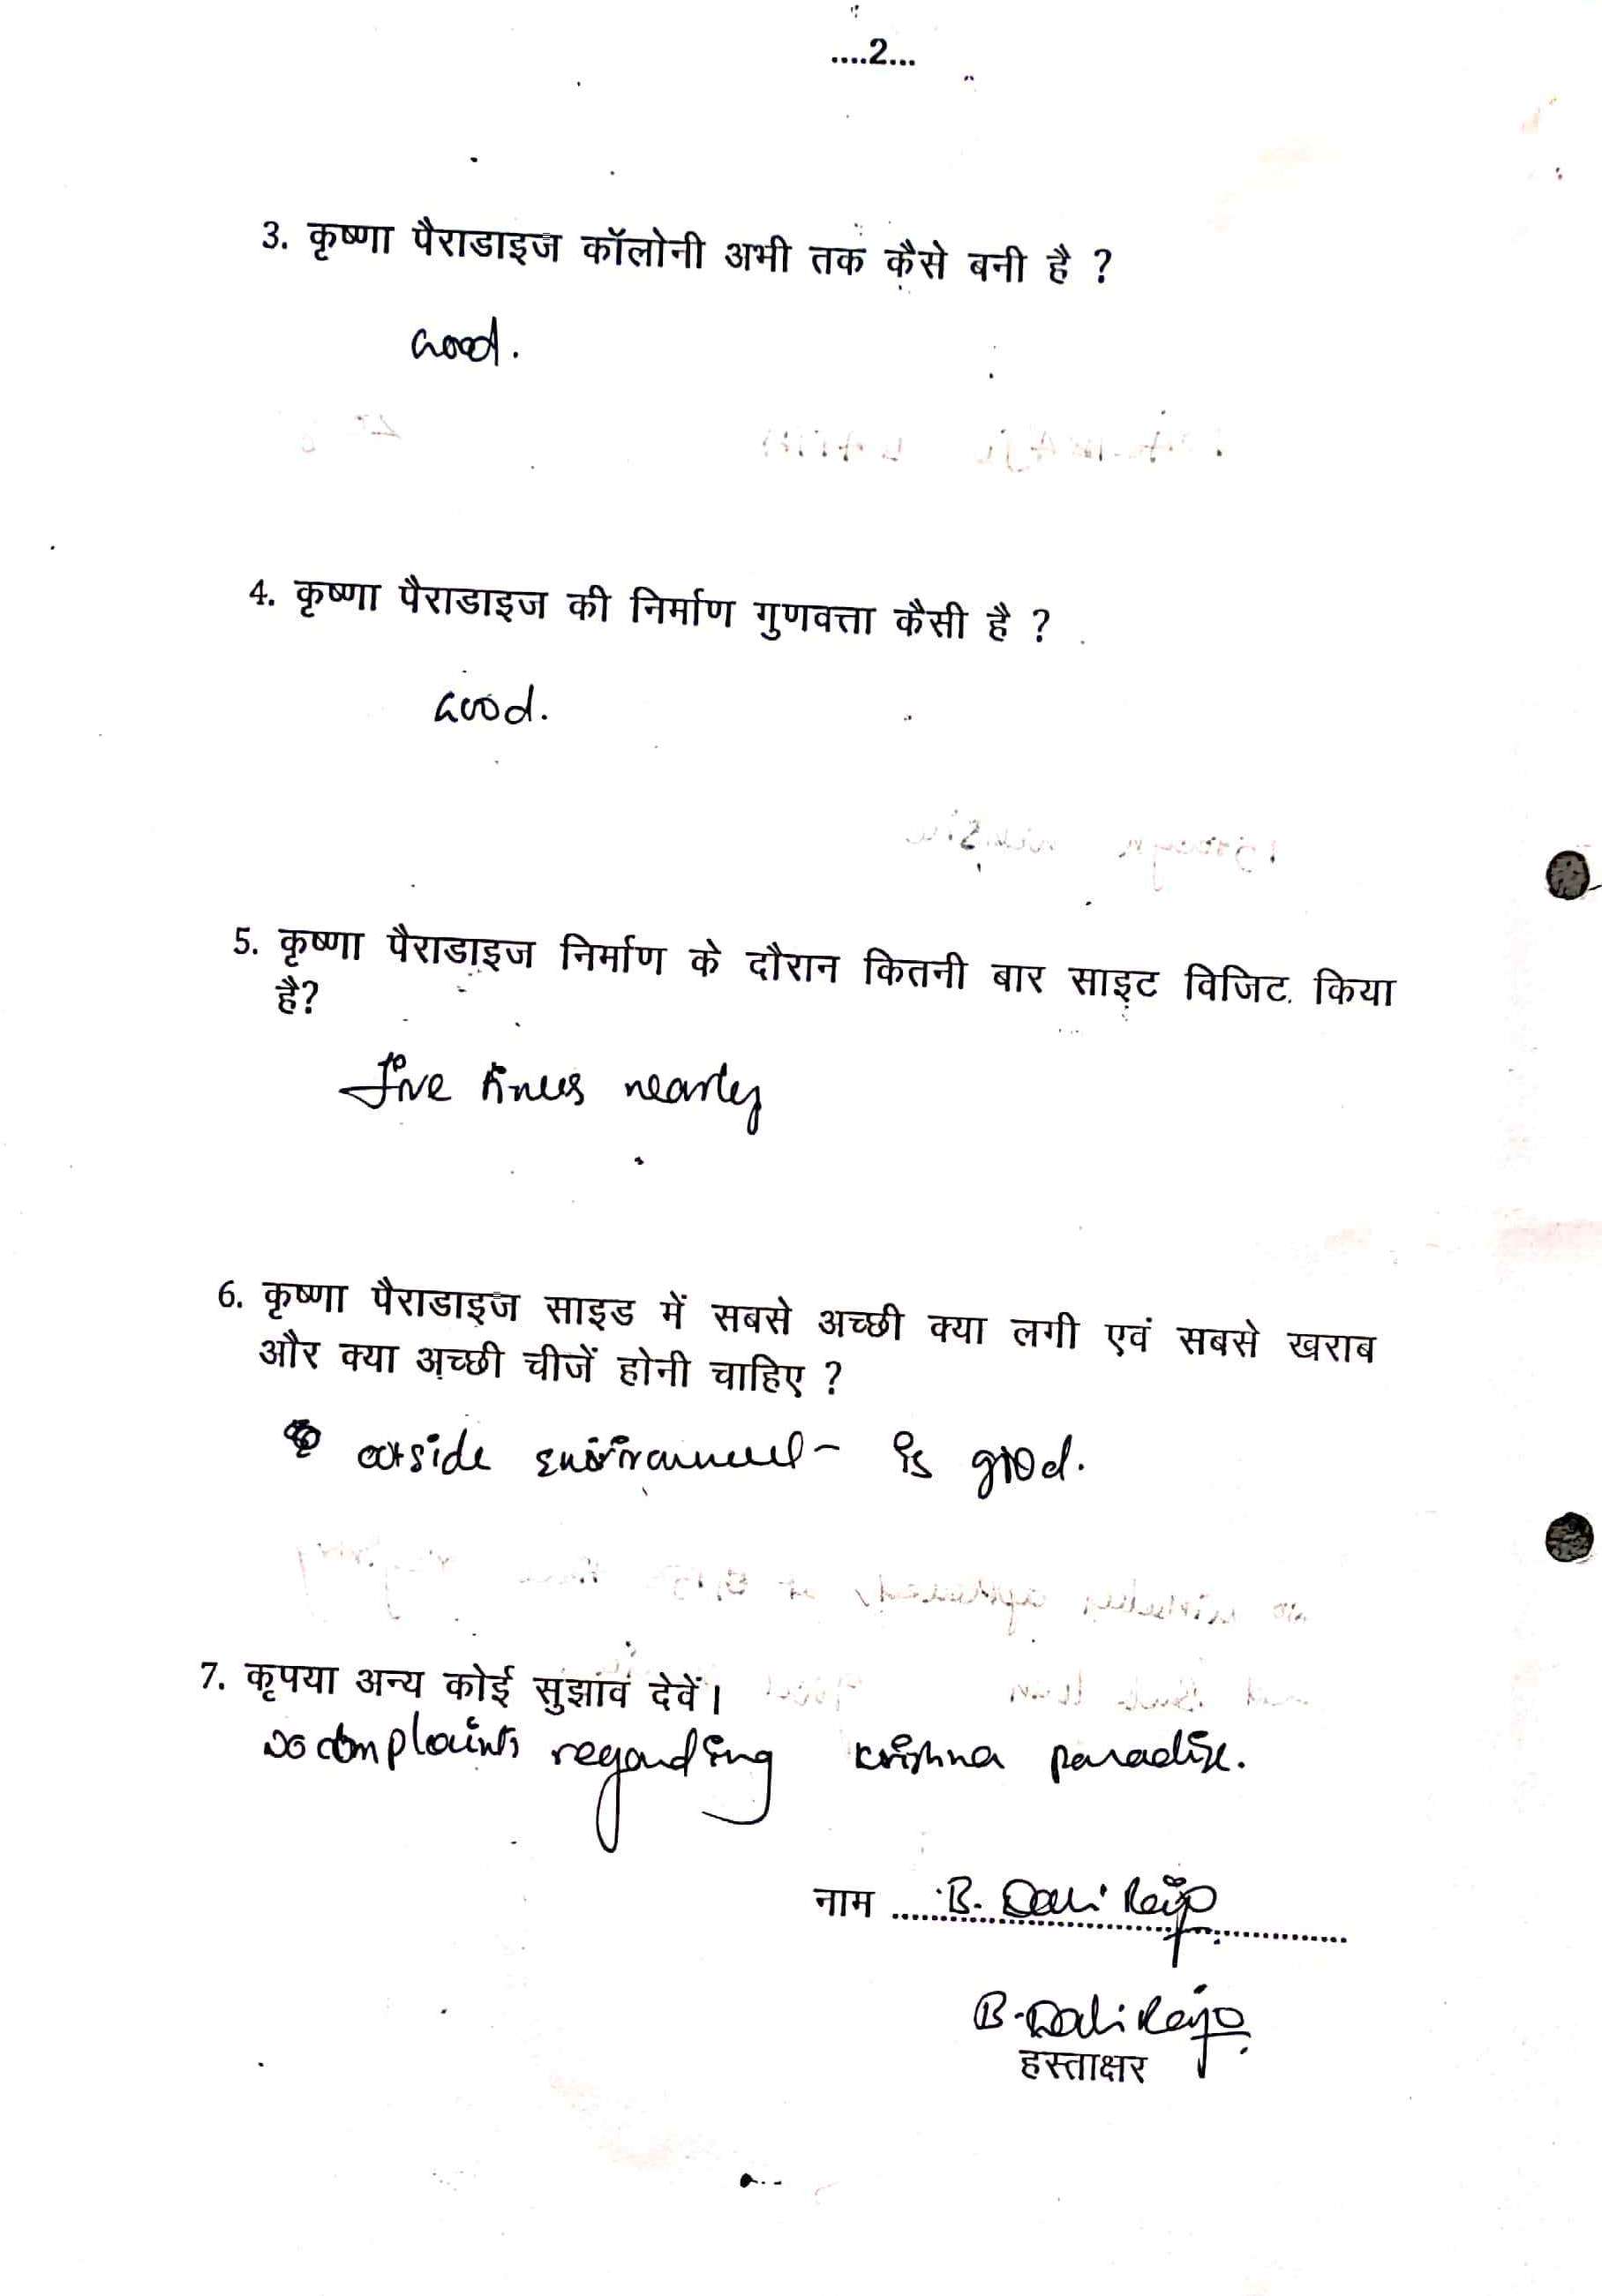 ....2...
3. कृष्णा पैराडाइज कॉलोनी अभी तक कैसे बनी है ?
Good.
4. कृष्णा पैराडाइज की निर्माण गुणवत्ता कैसी है ?
Good.
5. कृष्णा पैराडाइज निर्माण के दौरान कितनी बार साइट विजिट किया
है?
five times nearly
6. कृष्णा पैराडाइज साइड में सबसे अच्छी क्या लगी एवं सबसे खराब
और क्या अच्छी चीजें होनी चाहिए ?
outside environment is good.
7. कृपया अन्य कोई सुझाव देवें।
No complaints regarding Krishna paradise.
नाम .... B.
B.
हस्ताक्षर